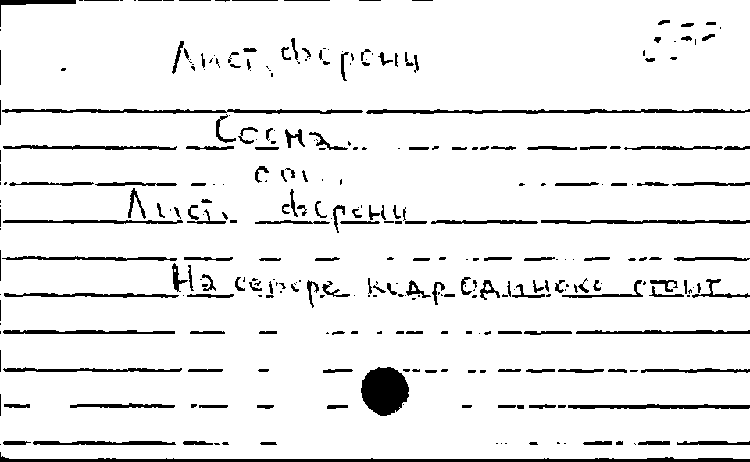 Лист, Ференц
Сосна.
соч.
Лист, Ференц
На севере кедр одиноко стоит